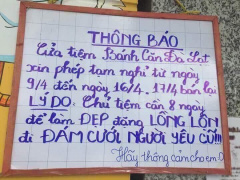 THÔNG BÁO
Cửa tiệm Bánh Căn Đà Lạt
xin phép tạm nghỉ từ ngày
9/4 đến ngày 16/4. 17/4 bán lại
LÝ DO: Chủ tiệm cần 8 ngày
để làm ĐẸP đặng LỒNG LỘN
đi ĐÁM CƯỚI NGƯỜI YÊU CŨ!!!
Hãy thông cảm cho em